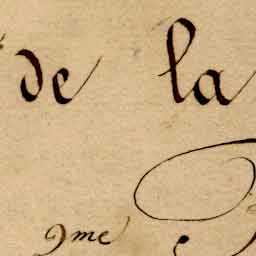 de la
9me